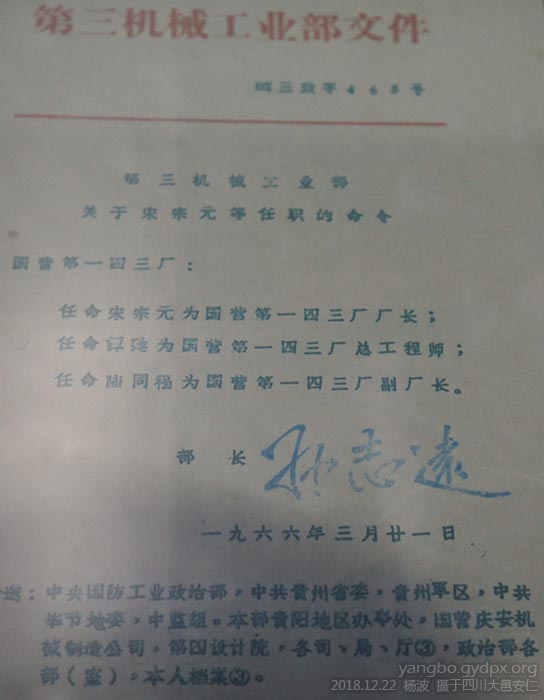 第三机械工业部文件
三政字465号
第三机械工业部
关于宋宗元等任职的命令
国营第一四三厂：
任命宋宗元为国营第一四三厂厂长；
任命谭为国营第一四三厂总工程师；
任命陆同福为国营第一四三厂副厂长。
部长 孙志远
一九六六年三月廿一日
送：中央国防工业政治部，中共贵州省委，贵州军区，中共
毕节地委，中监组。本部贵阳地区办事处，国营庆安机
械制造公司，第四设计院，各司、局、厅③，政治部各
部（室），本人档案③。
yangbo.gydpx.org
2018.12.22 杨波 摄于四川大邑安仁